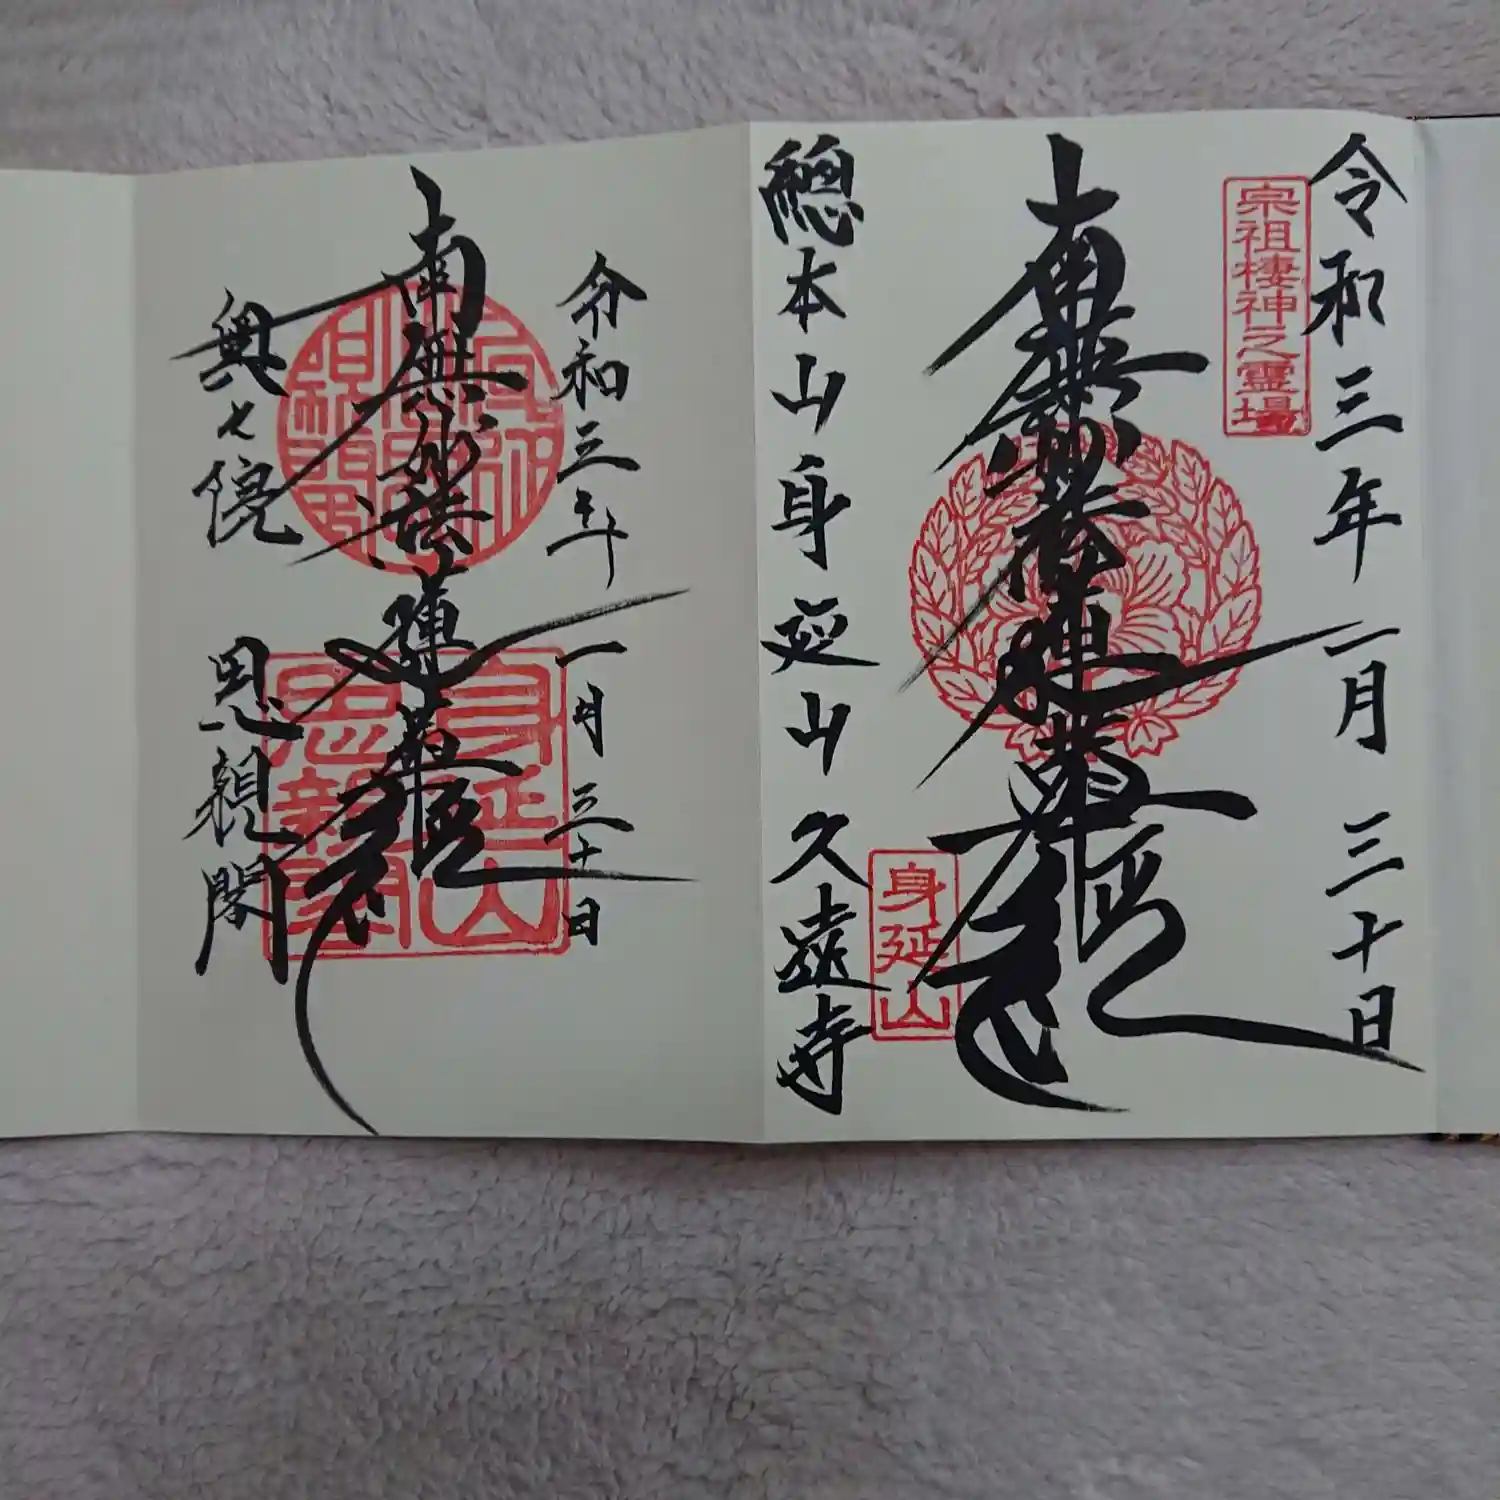 令和三年一月三十日
宗祖棲神之霊場
南無妙法蓮華経
身延山
總本山身延山久遠寺
令和三年一月三十日
南無妙法蓮華経
身延山
恩親閣
奥之院
思親閣